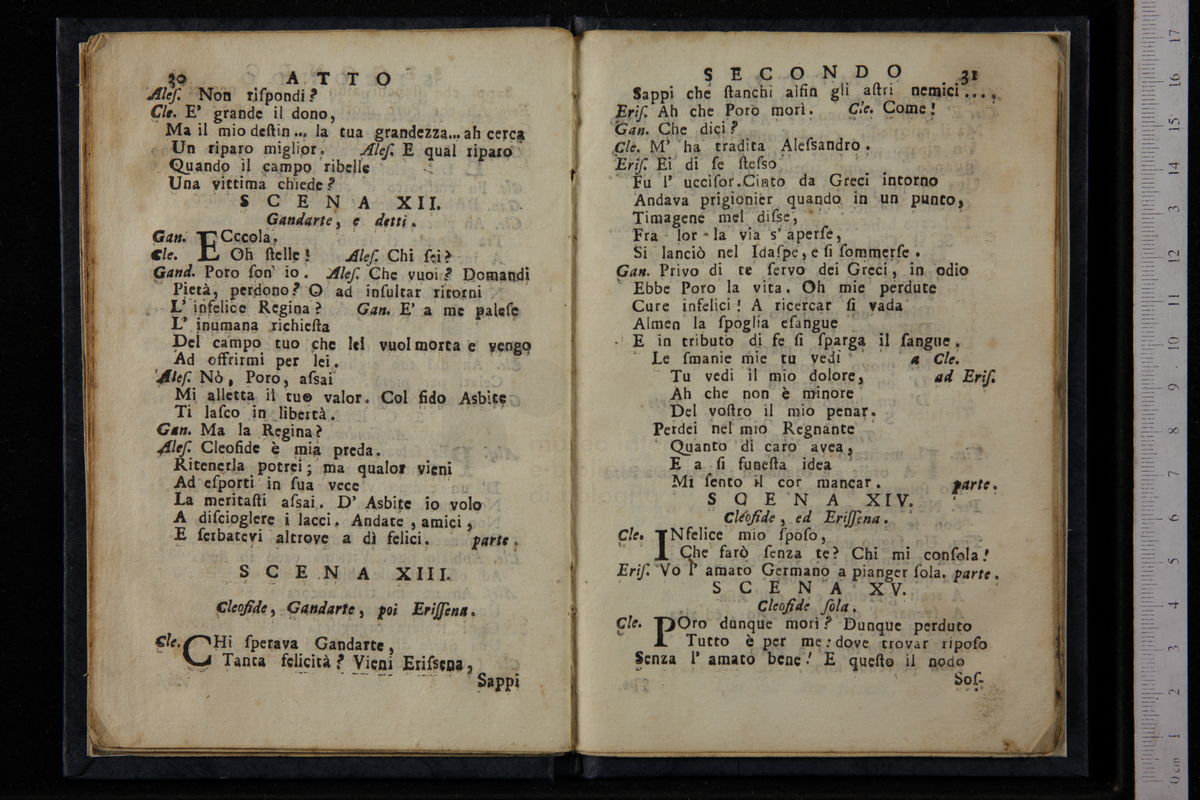 30 ATTO
Aleſ. Non riſpondi?
Cle. E' grande il dono,
Ma il mio deſtin... la tua grandezza... ah cerca
Un riparo miglior. Aleſ. E qual riparo
Quando il campo ribelle
Una vittima chiede?
SCENA XII.
Gandarte, e detti.
Gan. ECccola.
Cle. Oh ſtelle! Aleſ. Chi ſei?
Gand. Poro ſon' io. Aleſ. Che vuoi? Domandi
Pietà, perdono? O ad inſultar ritorni
L' infelice Regina? Gan. E' a me paleſe
L' inumana richieſta
Del campo tuo che lei vuol morta e vengo
Ad offrirmi per lei.
Aleſ. Nò, Poro, aſsai
Mi alletta il tuo valor. Col fido Asbite
Ti laſco in libertà.
Gan. Ma la Regina?
Aleſ. Cleofide è mia preda.
Ritenerla potrei; ma qualor vieni
Ad eſporti in ſua vece
La meritaſti aſsai. D' Asbite io volo
A diſciogliere i lacci. Andate, amici,
E ſerbatevi altrove a dì felici. parte.
SCENA XIII.
Cleofide, Gandarte, poi Eriſſena.
Cle. CHi ſperava Gandarte,
Tanta felicità? Vieni Eriſsena,
Sappi
SECONDO 31
Sappi che ſtanchi alfin gli aſtri nemici....
Eriſ. Ah che Poro morì. Cle. Come!
Gan. Che dici?
Cle. M' ha tradita Aleſsandro.
Eriſ. Ei di ſe ſteſso
Fu l' ucciſor. Cinto da Greci intorno
Andava prigionier quando in un punto,
Timagene mel diſse,
Fra lor la via s' aperſe,
Si lanciò nel Idaſpe, e ſi ſommerſe.
Gan. Privo di te ſervo dei Greci, in odio
Ebbe Poro la vita. Oh mie perdute
Cure infelici! A ricercar ſi vada
Almen la ſpoglia eſangue
E in tributo di fe ſi ſparga il ſangue.
Le ſmanie mie tu vedi a Cle.
Tu vedi il mio dolore, ad Eriſ.
Ah che non è minore
Del voſtro il mio penar.
Perdei nel mio Regnante
Quanto di caro avea,
E a ſi funeſta idea
Mi ſento il cor mancar. parte.
SCENA XIV.
Cleofide, ed Eriſſena.
Cle. INfelice mio ſpoſo,
Che farò ſenza te? Chi mi conſola!
Eriſ. Vo l' amato Germano a pianger ſola. parte.
SCENA XV.
Cleofide ſola.
Cle. POro dunque morì? Dunque perduto
Tutto è per me: dove trovar ripoſo
Senza l' amato bene! E queſto il nodo
Soſ-